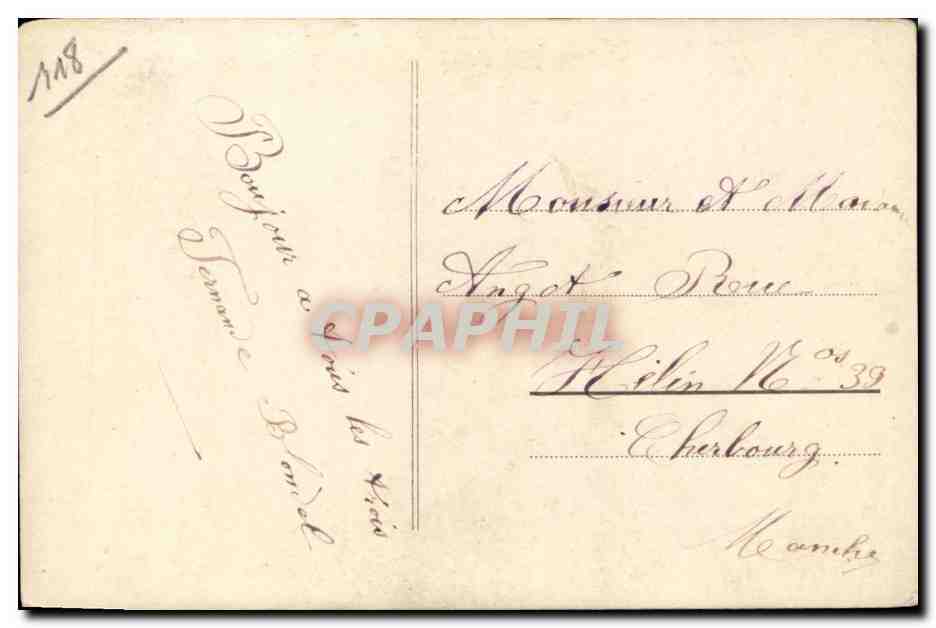 118
Bonjour a tous les trois
Fernande Blondel
Monsieur et Madame
Angot Rue
Hélin Nos 39
Cherbourg
Manche
CPAPHIL